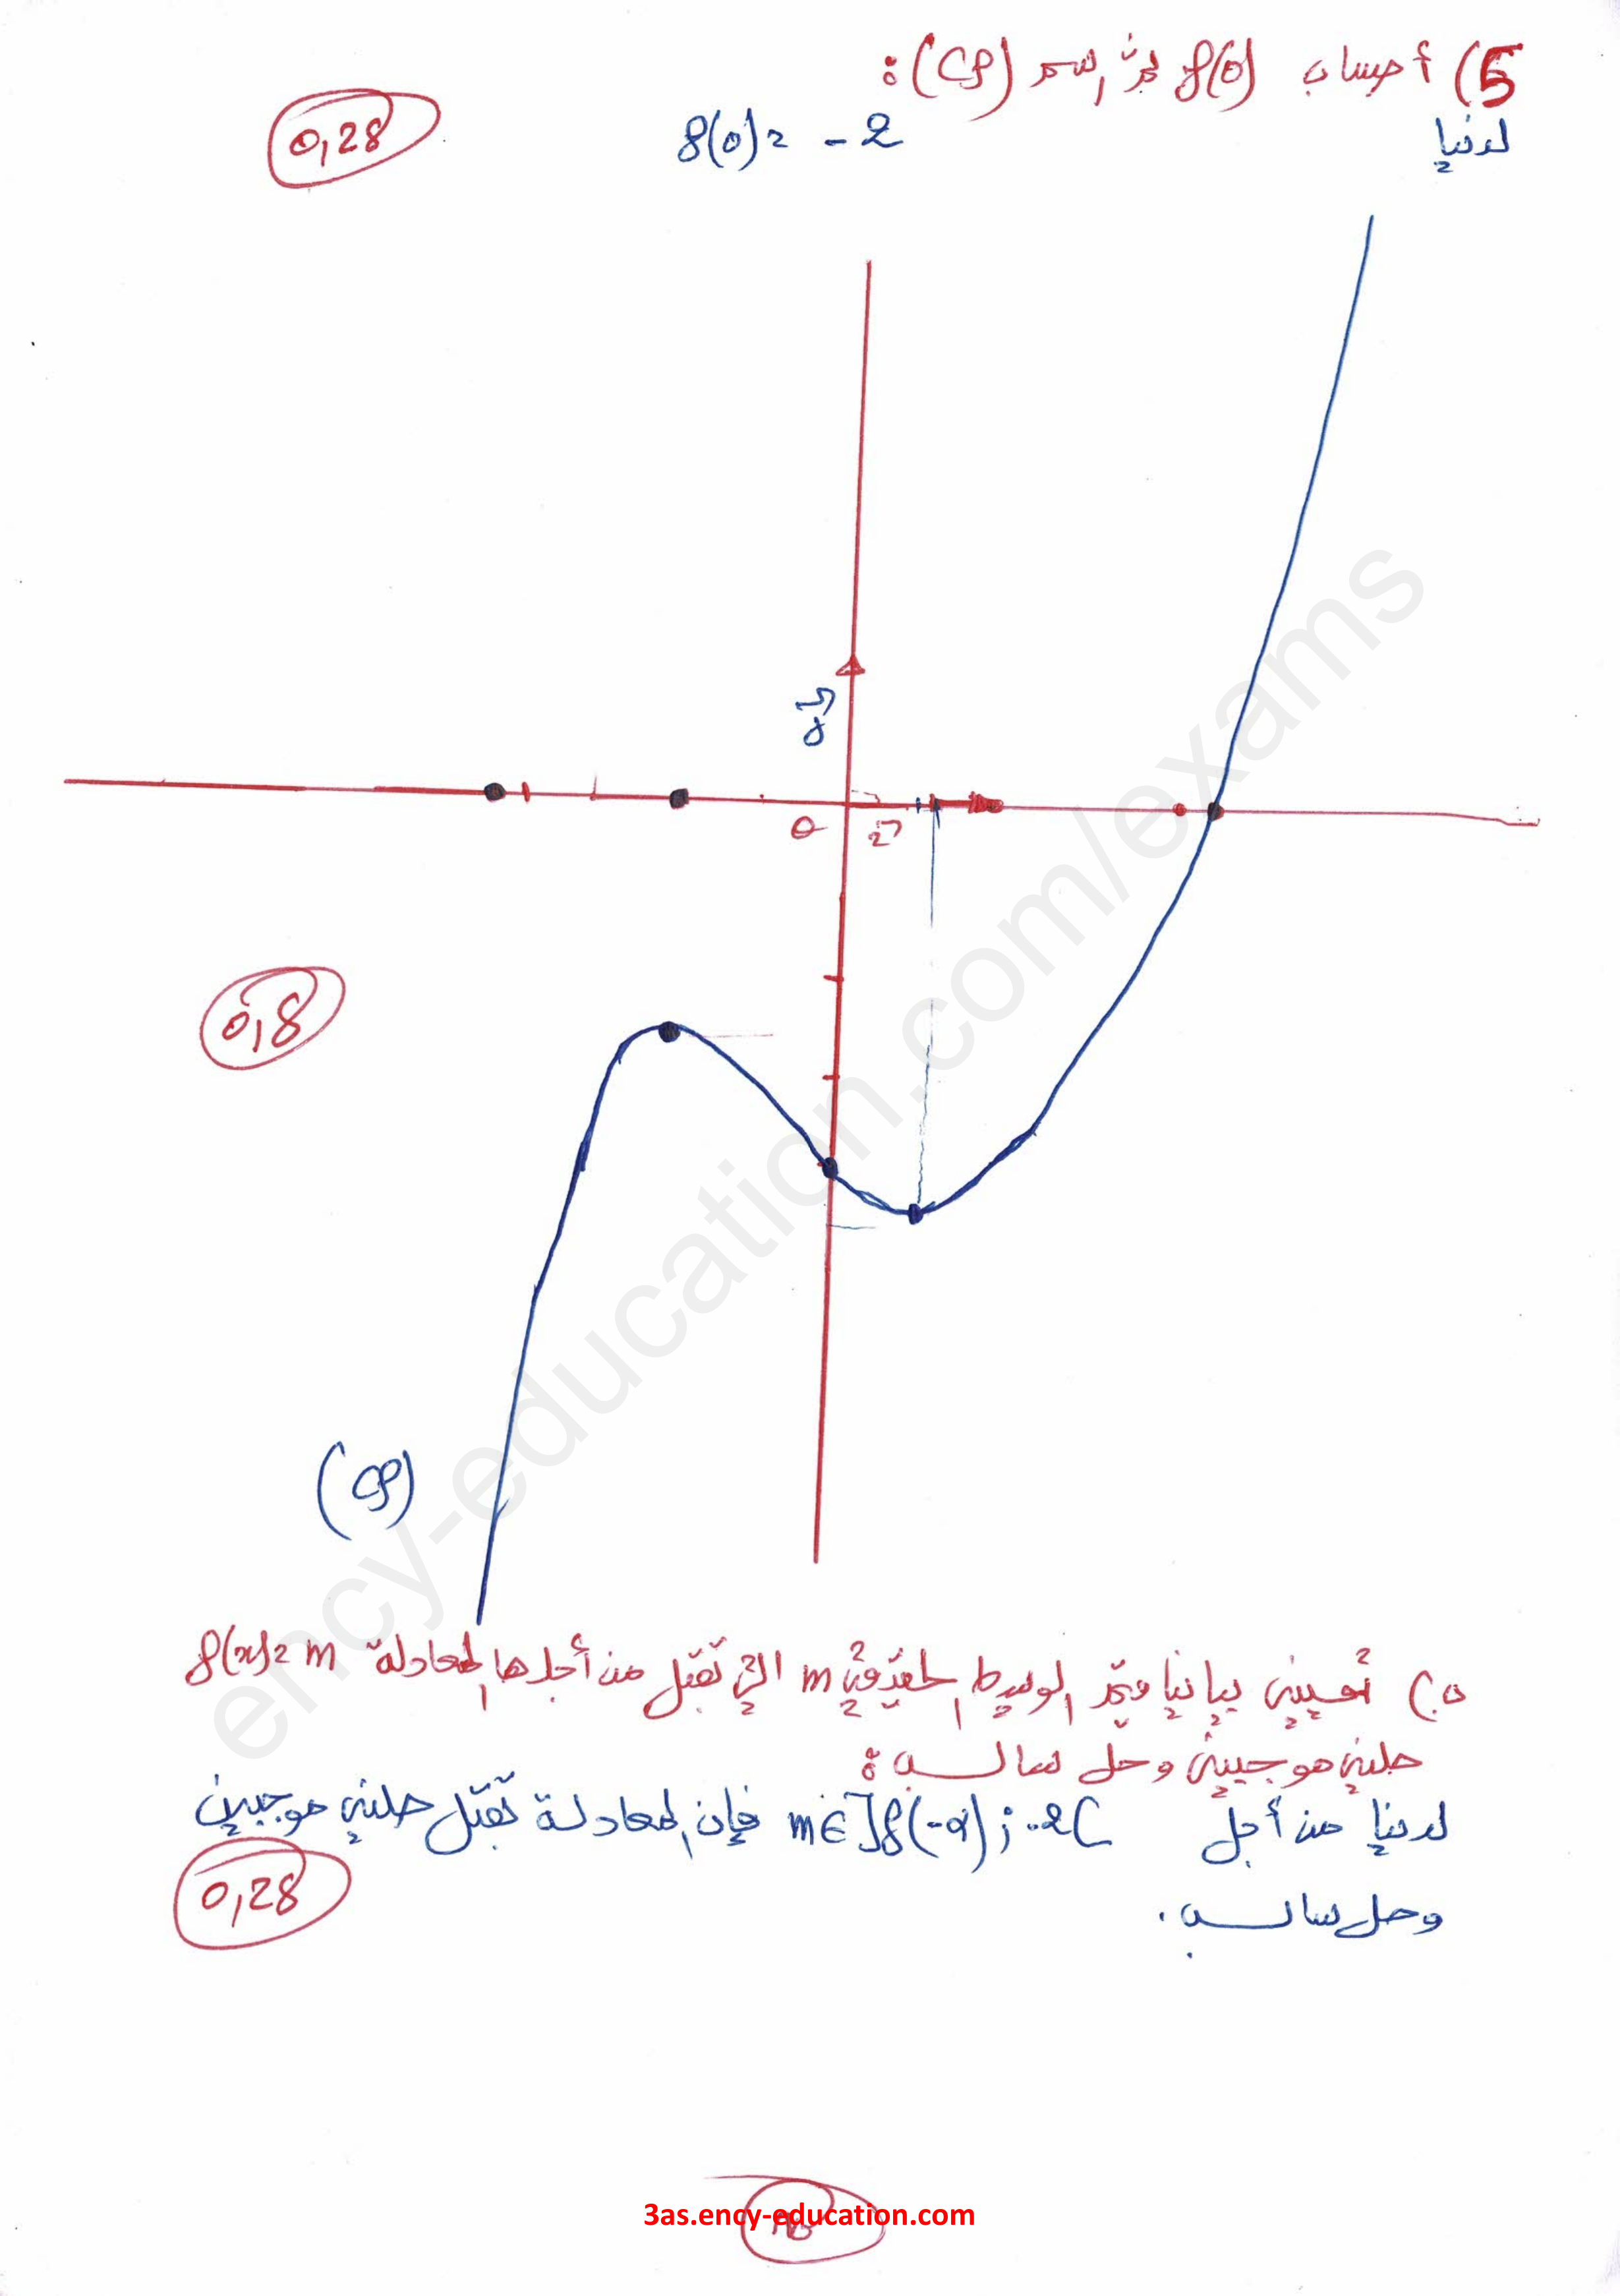 5) أ حساب f(0) ثمّ رسم (Cf):
لدينا f(0) = -2
0,25
j
O i
0,5
(Cf)
ب) تعيين بيانيا قيم الوسيط الحقيقي m التي تقبل من أجلها المعادلة f(x) = m
حلين موجبين وحل سالب:
لدينا من أجل m ∈ ]f(-α) ; -2[ فإن المعادلة تقبل حلين موجبين
وحل سالب.
0,25
3as.ency-education.com
ency-education.com/exams